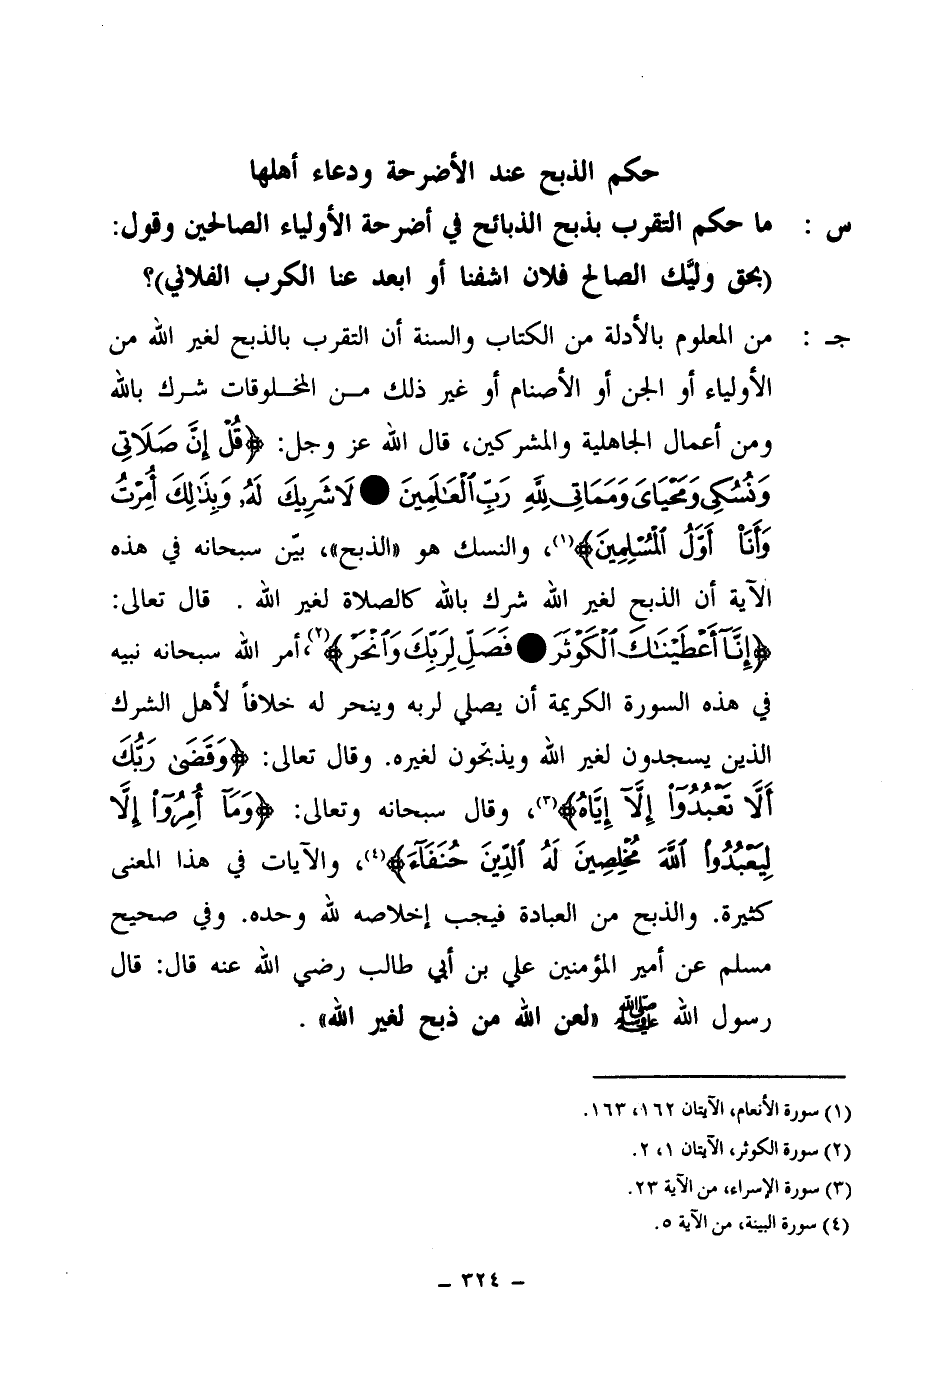 حكم الذبح عند الأضرحة ودعاء أهلها
س : ما حكم التقرب بذبح الذبائح في أضرحة الأولياء الصالحين وقول:
(بحق وليَّك الصالح فلان اشفنا أو ابعد عنا الكرب الفلاني)؟
جـ : من المعلوم بالأدلة من الكتاب والسنة أن التقرب بالذبح لغير الله من
الأولياء أو الجن أو الأصنام أو غير ذلك مـن المخلـوقات شرك بالله
ومن أعمال الجاهلية والمشركين، قال الله عز وجل: ﴿قُلْ إِنَّ صَلَاتِى
وَنُسُكِى وَمَحْيَاىَ وَمَمَاتِى لِلَّهِ رَبِّ ٱلْعَٰلَمِينَ ● لَا شَرِيكَ لَهُۥ وَبِذَٰلِكَ أُمِرْتُ
وَأَنَا۠ أَوَّلُ ٱلْمُسْلِمِينَ﴾(١)، والنسك هو «الذبح»، بيّن سبحانه في هذه
الآية أن الذبح لغير الله شرك بالله كالصلاة لغير الله . قال تعالى:
﴿إِنَّآ أَعْطَيْنَٰكَ ٱلْكَوْثَرَ ● فَصَلِّ لِرَبِّكَ وَٱنْحَرْ﴾(٢)، أمر الله سبحانه نبيه
في هذه السورة الكريمة أن يصلي لربه وينحر له خلافاً لأهل الشرك
الذين يسجدون لغير الله ويذبحون لغيره. وقال تعالى: ﴿وَقَضَىٰ رَبُّكَ
أَلَّا تَعْبُدُوٓا۟ إِلَّآ إِيَّاهُ﴾(٣)، وقال سبحانه وتعالى: ﴿وَمَآ أُمِرُوٓا۟ إِلَّا
لِيَعْبُدُوا۟ ٱللَّهَ مُخْلِصِينَ لَهُ ٱلدِّينَ حُنَفَآءَ﴾(٤)، والآيات في هذا المعنى
كثيرة. والذبح من العبادة فيجب إخلاصه لله وحده. وفي صحيح
مسلم عن أمير المؤمنين علي بن أبي طالب رضي الله عنه قال: قال
رسول الله ﷺ «لعن الله من ذبح لغير الله» .
(١) سورة الأنعام، الآيتان ١٦٢، ١٦٣.
(٢) سورة الكوثر، الآيتان ١، ٢.
(٣) سورة الإسراء، من الآية ٢٣.
(٤) سورة البينة، من الآية ٥.
– ٣٢٤ –